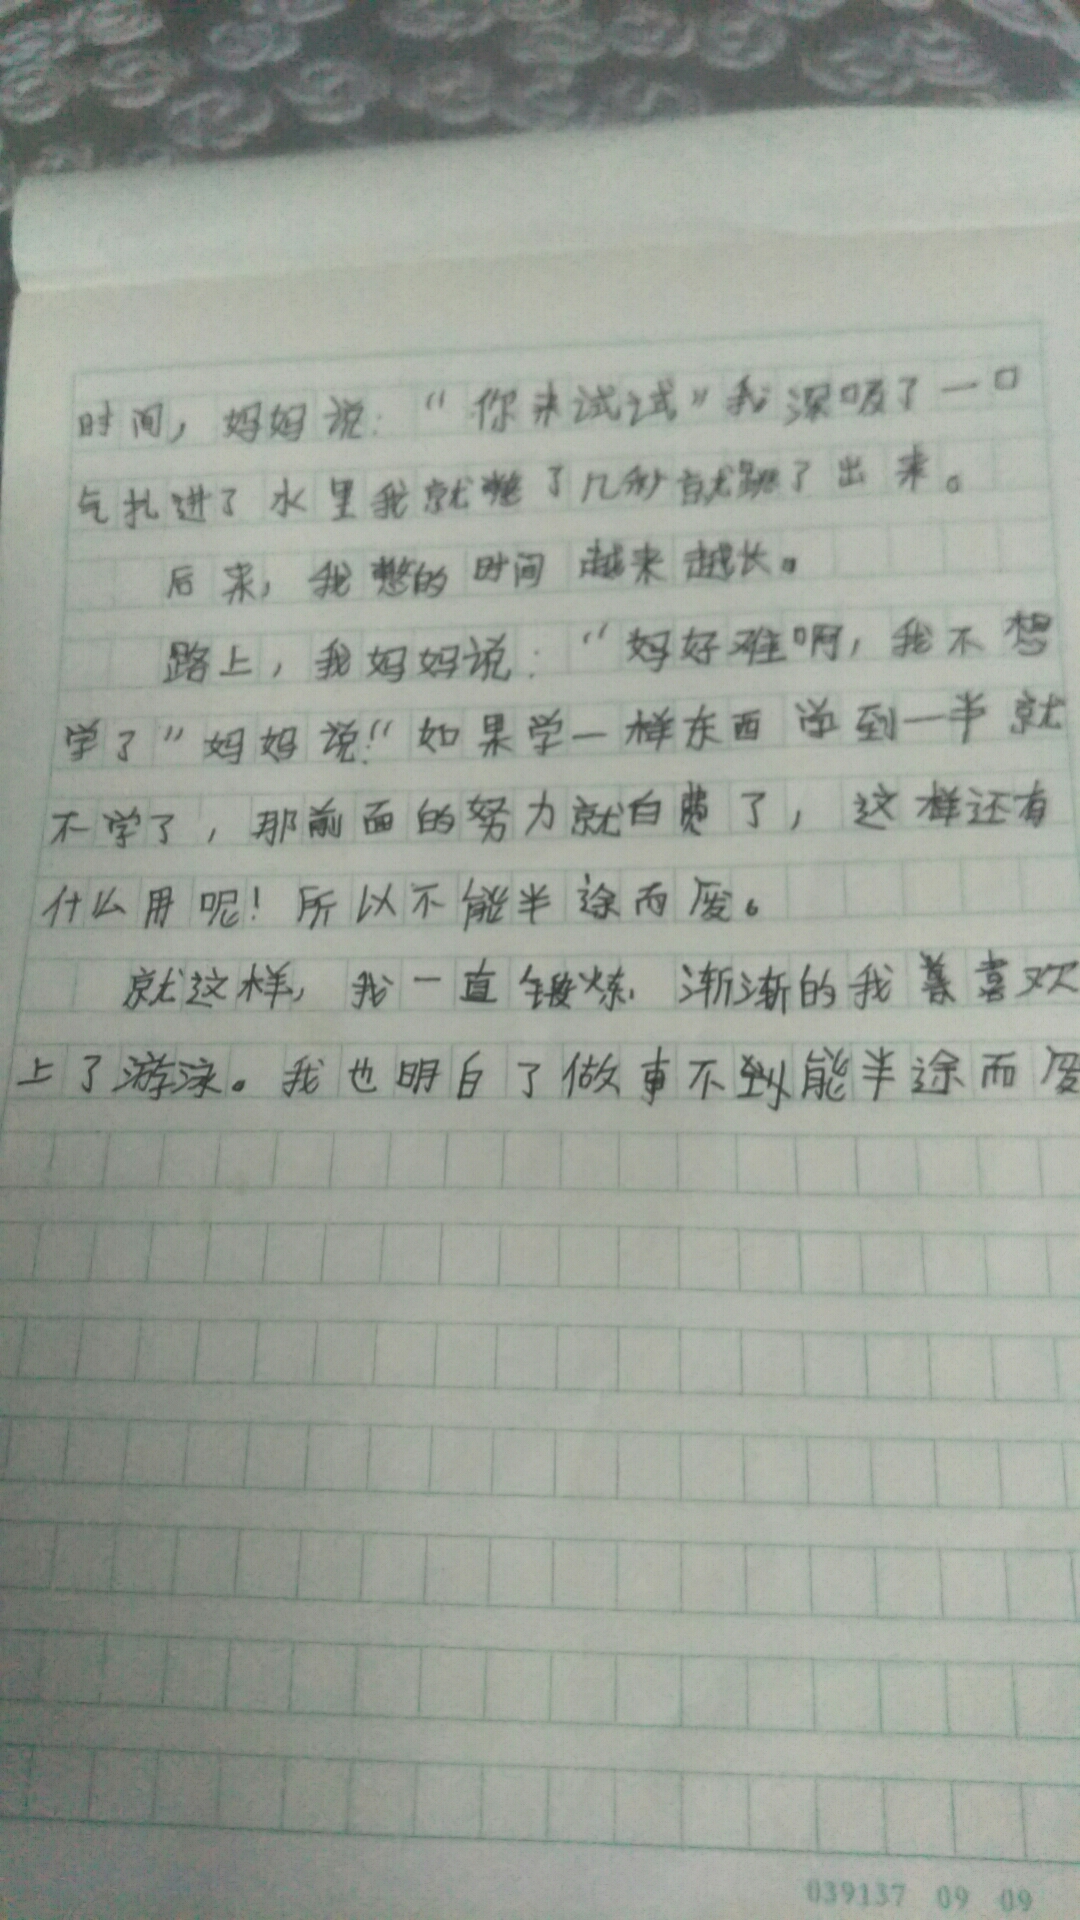 时间，妈妈说：“你来试试”我深吸了一口
气扎进了水里我就憋了几秒就跳了出来。
后来，我憋的时间越来越长。
路上，我妈妈说：“妈好难啊，我不想
学了”妈妈说！“如果学一样东西学到一半就
不学了，那前面的努力就白费了，这样还有
什么用呢！所以不能半途而废。
就这样，我一直锻炼，渐渐的我喜欢
上了游泳。我也明白了做事不能半途而废
039137 09 09